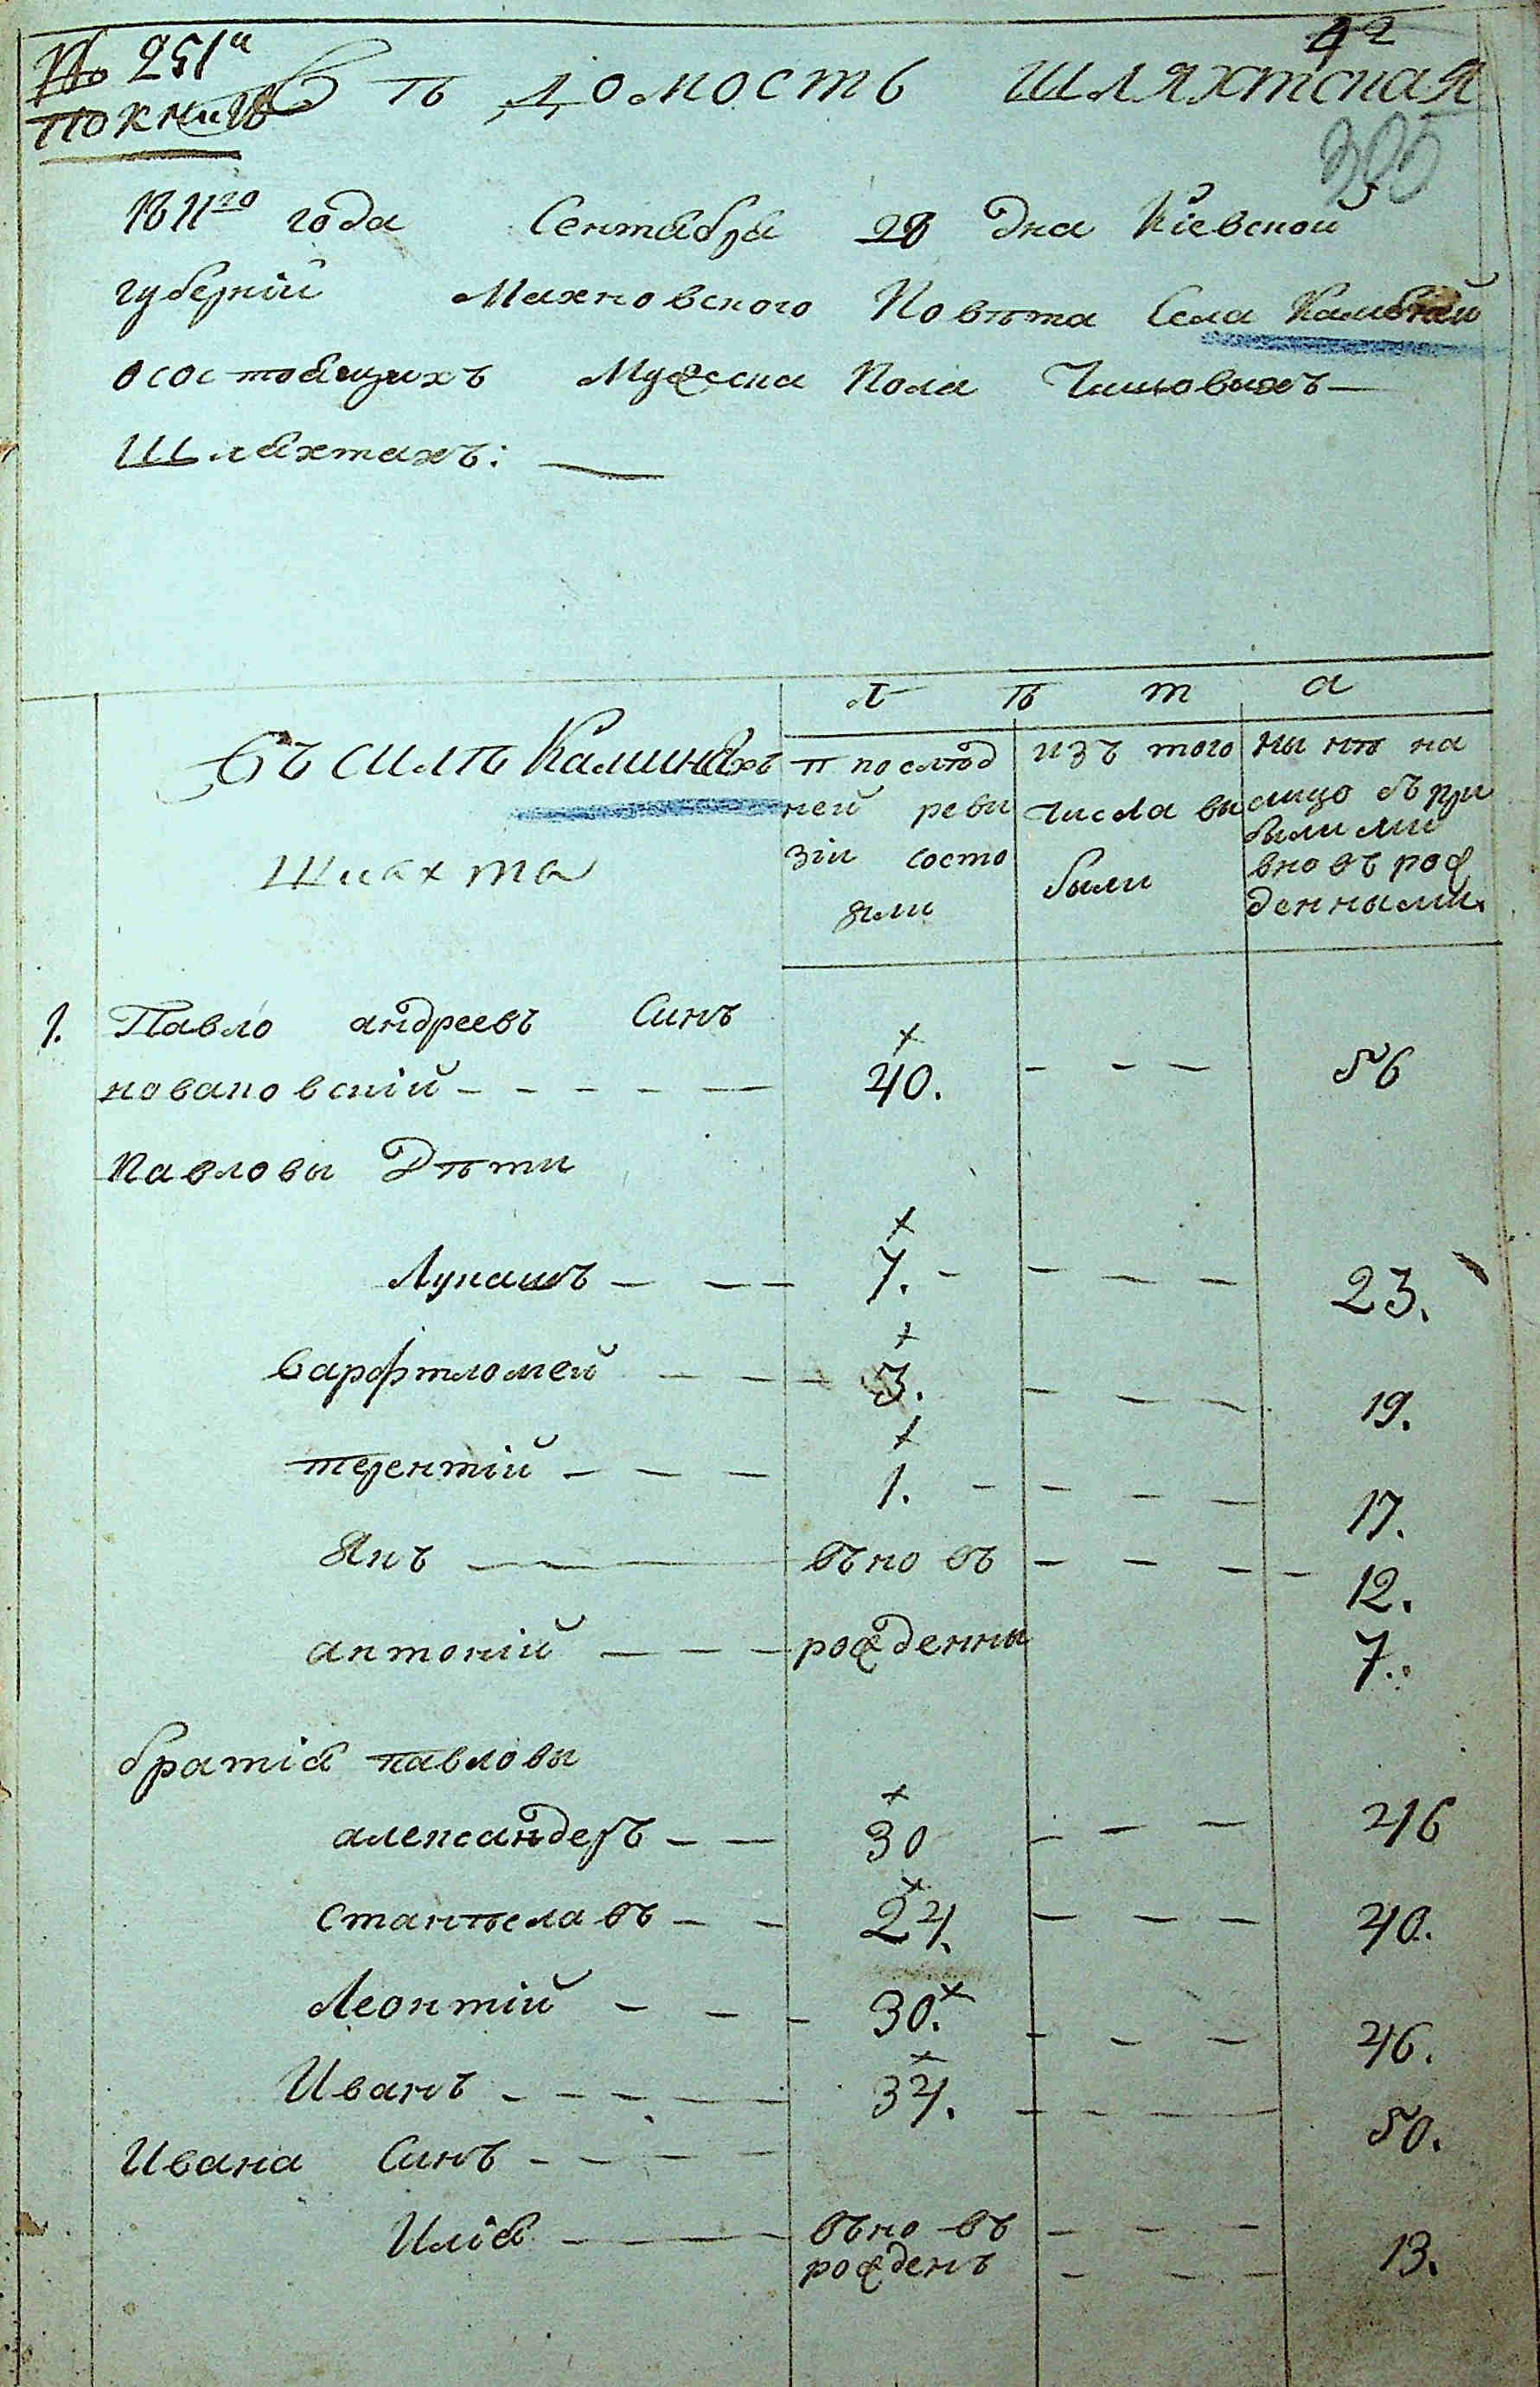 № 251а
по книгѣ
42
Вѣдомость шляхтская
305
1811го года Сентября 28 дня Кіевской
губерніи Махновского Повѣта Села Калиней
о состоящихъ Мужеска Пола Чишовыхъ
Шляхтахъ:
Лѣта
Въ силѣ Калиняхъ
Шляхта
п послѣд
ней реви
зіи состо
яли
изъ того
числа вы
были
ныне на
лицо съ при
былими
вновъ рож
денными
1. Павло андреевъ Синъ
новаковскій - - - - - - 40. - - - 56
Павловы Дѣти
Лукашъ - - - 7. - - - - 23.
варфтломей - - - 3. - - - 19.
терентій - - - 1. - - - - 17.
Янъ — въновъ - - - - 12.
антоній - - - рожденны 7.
братія павловы
александеръ - - 30 - - - 46
станѣславъ - - 24. - - - 40.
Леонтій - - - 30. - - - 46.
Иванъ - - - - - 34. - - - 50.
Ивана Синъ - - - -
Илія — въновъ - - -
рожденъ - - - 13.